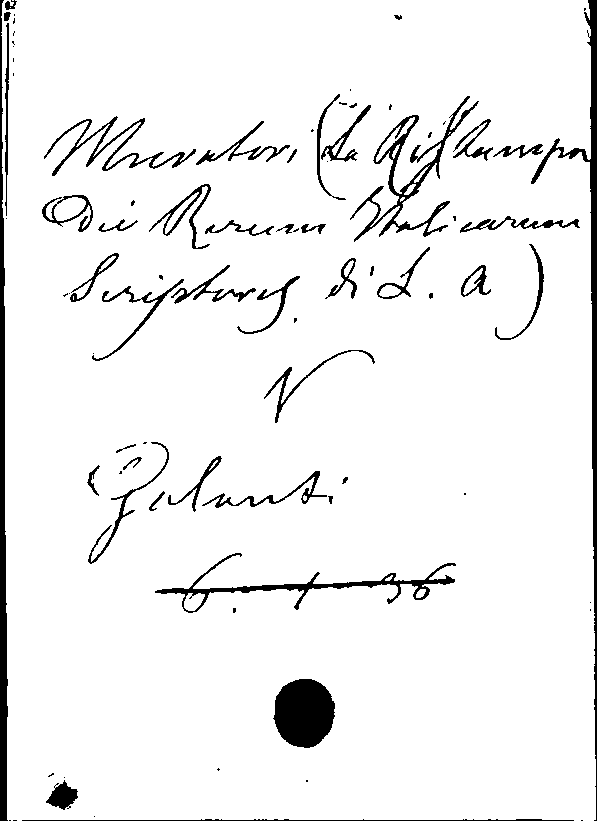 Muratori (La Ristampa
Dei Rerum Italicarum
Scriptores di L. A)
V
Galanti
6. 1 36